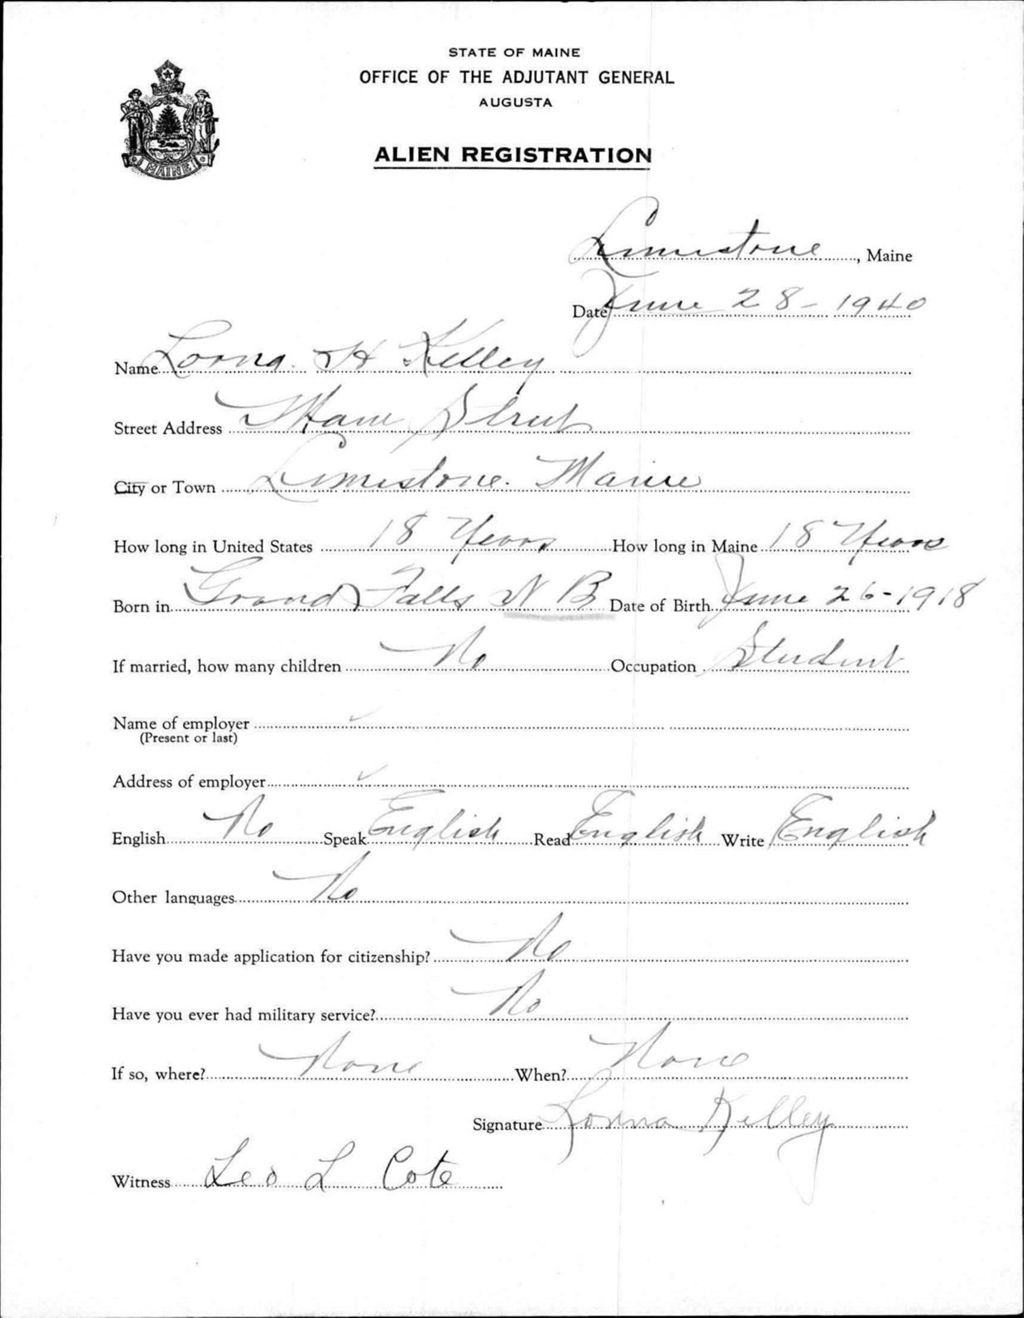 STATE OF MAINE
OFFICE OF THE ADJUTANT GENERAL
AUGUSTA
MAINE
ALIEN REGISTRATION
Limestone, Maine
Date June 28 - 1940
Name Lorna H Kelley
Street Address Main Street
City or Town Limestone. Maine
How long in United States 18 Years How long in Maine 18 Years
Born in Grand Falls N B Date of Birth June 26 - 1918
If married, how many children No Occupation Student
Name of employer
(Present or last)
Address of employer
English No Speak English Read English Write English
Other languages No
Have you made application for citizenship? No
Have you ever had military service? No
If so, where? None When? None
Signature Lorna Kelley
Witness Leo L Cote